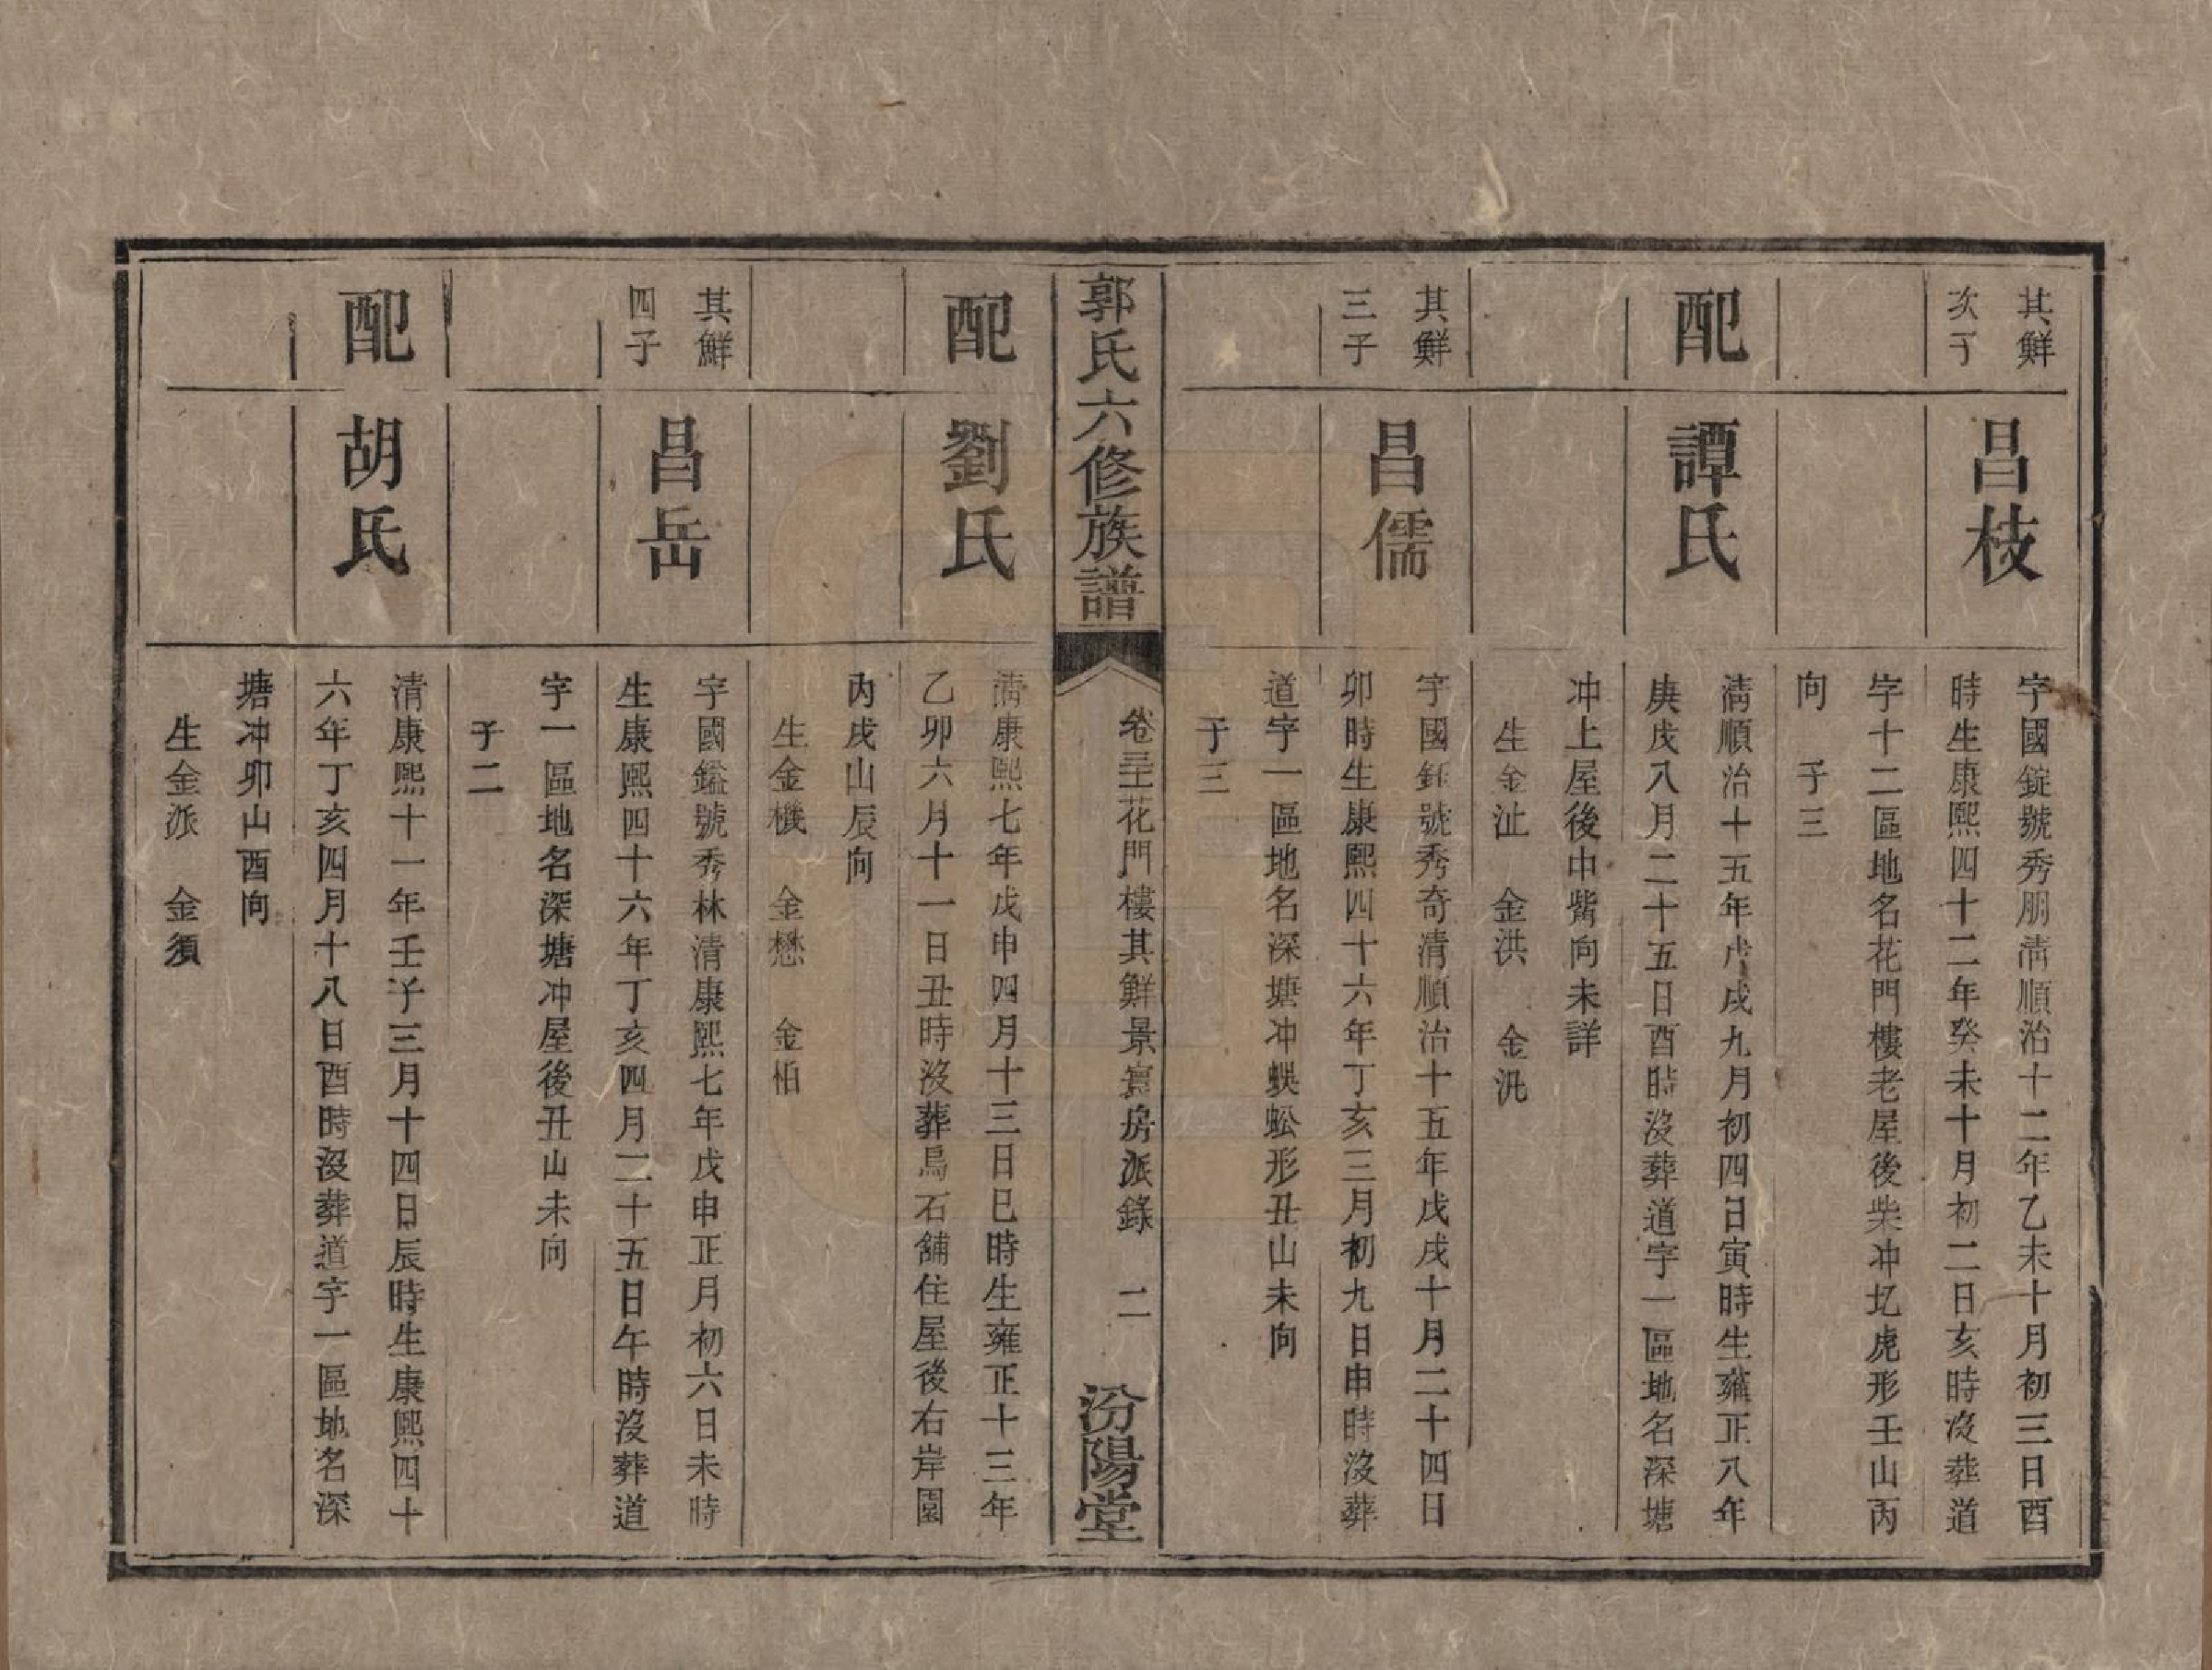 其鮮
次子
昌枝
字國錠號秀朋清順治十二年乙未十月初三日酉
時生康熙四十二年癸未十月初二日亥時沒葬道
字十二區地名花門樓老屋後柴冲圠虎形壬山丙
向　子三
配
譚氏
清順治十五年戊戌九月初四日寅時生雍正八年
庚戌八月二十五日酉時沒葬道字一區地名深塘
冲上屋後中嘴向未詳
生金沚　金洪　金汎
其鮮
三子
昌儒
字國鉌號秀奇清順治十五年戊戌十月二十四日
卯時生康熙四十六年丁亥三月初九日申時沒葬
道字一區地名深塘冲蜈蚣形丑山未向
子三
郭氏六修族譜
卷三　花門樓其鮮景寰房派錄　二
汾陽堂
配
劉氏
清康熙七年戊申四月十三日巳時生雍正十三年
乙卯六月十一日丑時沒葬烏石舖住屋後右岸園
丙戌山辰向
生金機　金懋　金柏
其鮮
四子
昌岳
字國鎰號秀林清康熙七年戊申正月初六日未時
生康熙四十六年丁亥四月二十五日午時沒葬道
字一區地名深塘冲屋後丑山未向
子二
配
胡氏
清康熙十一年壬子三月十四日辰時生康熙四十
六年丁亥四月十八日酉時沒葬道字一區地名深
塘冲卯山酉向
生金派　金須